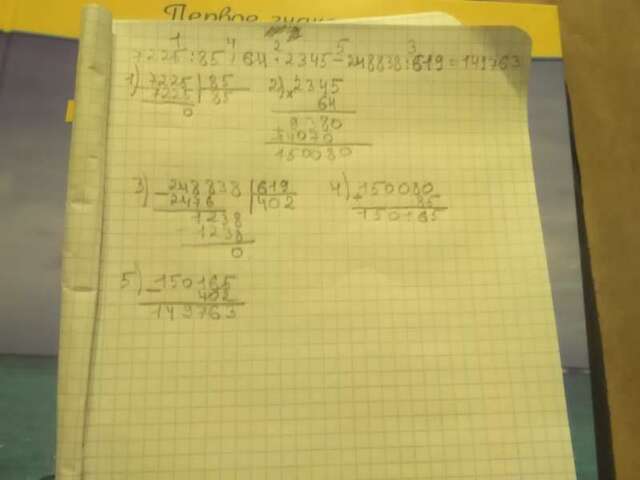 Первое
1 4 2 5 3
7225:85+64·2345-248838:619=149763
1) 7225 | 85
7225 | 85
0
2) × 2345
64
9380
14070
150080
3) - 248838 | 619
2476 | 402
1238
- 1238
0
4) 150080
+ 85
150165
5) - 150165
402
149763